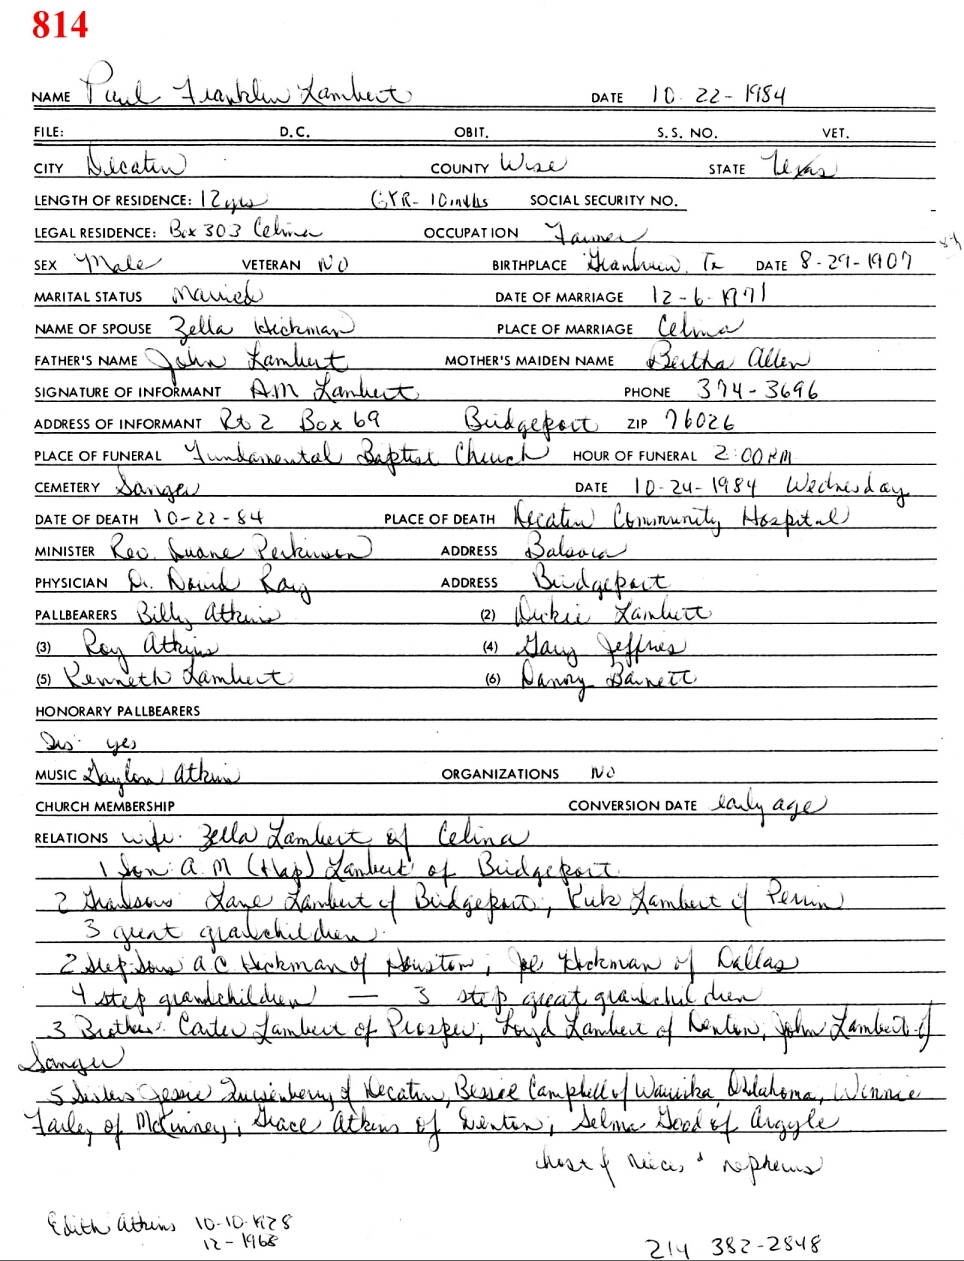 814
NAME Paul Franklin Lambert DATE 10-22-1984
FILE: D.C. OBIT. S.S. NO. VET.
CITY Decatur COUNTY Wise STATE Texas
LENGTH OF RESIDENCE: 12 yrs 10 mths SOCIAL SECURITY NO.
LEGAL RESIDENCE: Box 303 Celina OCCUPATION Farmer
SEX Male VETERAN NO BIRTHPLACE Grandview, Tx DATE 8-29-1907
MARITAL STATUS Married DATE OF MARRIAGE 12-6-1971
NAME OF SPOUSE Zella Hickman PLACE OF MARRIAGE Celina
FATHER'S NAME John Lambert MOTHER'S MAIDEN NAME Bertha Allen
SIGNATURE OF INFORMANT A.M Lambert PHONE 374-3696
ADDRESS OF INFORMANT Rt 2 Box 69 Bridgeport ZIP 76026
PLACE OF FUNERAL Fundamental Baptist Church HOUR OF FUNERAL 2:00 PM
CEMETERY Sanger DATE 10-24-1984 Wednesday
DATE OF DEATH 10-22-84 PLACE OF DEATH Decatur Community Hospital
MINISTER Rev. Duane Perkinson ADDRESS
PHYSICIAN Dr. David Ray ADDRESS Bridgeport
PALLBEARERS Billy Atkins (2) Dickie Lambert
(3) Roy Atkins (4) Gary Jeffries
(5) Kenneth Lambert (6) Danny Barnett
HONORARY PALLBEARERS
yes
MUSIC Daylon Atkins ORGANIZATIONS NO
CHURCH MEMBERSHIP CONVERSION DATE early age
RELATIONS wife. Zella Lambert of Celina
1 Son: A. M (Hap) Lambert of Bridgeport
2 Grandsons Lane Lambert of Bridgeport, Kirk Lambert of Perrin
3 great grandchildren.
2 Step-Sons A C Hickman of Houston, Joe Hickman of Dallas
4 step grandchildren — 3 step great grandchildren
3 Brothers. Carter Lambert of Prosper, Loyd Lambert of Denton, John Lambert of
Sanger
5 Sisters Jessie Quisenberry of Decatur, Bessie Campbell of Waurika, Oklahoma, Winnie
Farley of McKinney, Grace Atkins of Denton, Selma Good of Argyle
host of nieces & nephews
Edith Atkins 10-10-1928
12-1968
214 382-2848